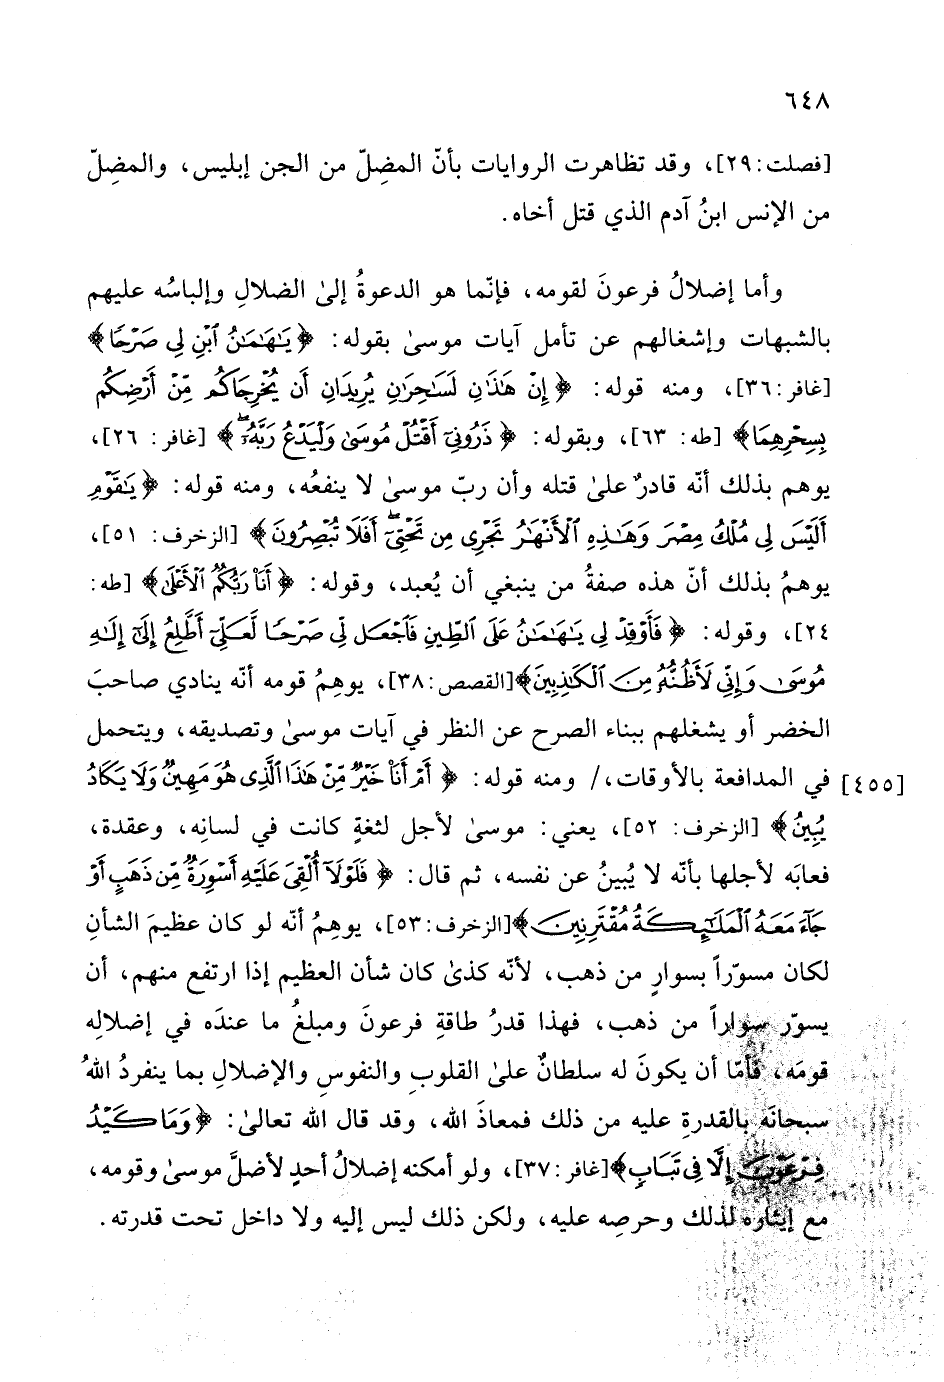 ٦٤٨
[فصلت: ٢٩]، وقد تظاهرت الروايات بأنّ المضِلّ من الجن إبليس، والمضِلّ
من الإنس ابنُ آدم الذي قتل أخاه.
وأما إضلالُ فرعونَ لقومه، فإنّما هو الدعوةُ إلىٰ الضلالِ وإلباسُه عليهم
بالشبهات وإشغالهم عن تأمل آيات موسىٰ بقوله: ﴿يَٰهَٰمَٰنُ ٱبۡنِ لِي صَرۡحٗا﴾
[غافر: ٣٦]، ومنه قوله: ﴿إِنۡ هَٰذَٰنِ لَسَٰحِرَٰنِ يُرِيدَانِ أَن يُخۡرِجَاكُم مِّنۡ أَرۡضِكُم
بِسِحۡرِهِمَا﴾ [طه: ٦٣]، وبقوله: ﴿ذَرُونِيٓ أَقۡتُلۡ مُوسَىٰ وَلۡيَدۡعُ رَبَّهُۥٓۖ﴾ [غافر: ٢٦]،
يوهم بذلك أنّه قادرٌ علىٰ قتله وأن ربّ موسىٰ لا ينفعُه، ومنه قوله: ﴿يَٰقَوۡمِ
أَلَيۡسَ لِي مُلۡكُ مِصۡرَ وَهَٰذِهِ ٱلۡأَنۡهَٰرُ تَجۡرِي مِن تَحۡتِيٓۖ أَفَلَا تُبۡصِرُونَ﴾ [الزخرف: ٥١]،
يوهمُ بذلك أنّ هذه صفةُ من ينبغي أن يُعبد، وقوله: ﴿أَنَا۠ رَبُّكُمُ ٱلۡأَعۡلَىٰ﴾ [طه:
٢٤]، وقوله: ﴿فَأَوۡقِدۡ لِي يَٰهَٰمَٰنُ عَلَى ٱلطِّينِ فَٱجۡعَل لِّي صَرۡحٗا لَّعَلِّيٓ أَطَّلِعُ إِلَىٰٓ إِلَٰهِ
مُوسَىٰ وَإِنِّي لَأَظُنُّهُۥ مِنَ ٱلۡكَٰذِبِينَ﴾ [القصص: ٣٨]، يوهِمُ قومه أنّه ينادي صاحبَ
الخضر أو يشغلهم ببناء الصرح عن النظر في آيات موسىٰ وتصديقه، ويتحمل
[٤٥٥] في المدافعة بالأوقات،/ ومنه قوله: ﴿أَمۡ أَنَا۠ خَيۡرٞ مِّنۡ هَٰذَا ٱلَّذِي هُوَ مَهِينٞ وَلَا يَكَادُ
يُبِينُ﴾ [الزخرف: ٥٢]، يعني: موسىٰ لأجل لثغةٍ كانت في لسانِه، وعقدة،
فعابَه لأجلها بأنّه لا يُبينُ عن نفسه، ثم قال: ﴿فَلَوۡلَآ أُلۡقِيَ عَلَيۡهِ أَسۡوِرَةٞ مِّن ذَهَبٍ أَوۡ
جَآءَ مَعَهُ ٱلۡمَلَٰٓئِكَةُ مُقۡتَرِنِينَ﴾ [الزخرف: ٥٣]، يوهِمُ أنّه لو كان عظيمَ الشأنِ
لكان مسوّراً بسوارٍ من ذهب، لأنّه كذىٰ كان شأن العظيم إذا ارتفع منهم، أن
يسوّر سواراً من ذهب، فهذا قدرُ طاقةِ فرعونَ ومبلغُ ما عندَه في إضلالِه
قومَه، فأمّا أن يكونَ له سلطانٌ علىٰ القلوبِ والنفوسِ والإضلالِ بما ينفردُ اللهُ
سبحانَه بالقدرةِ عليه من ذلك فمعاذَ الله، وقد قال الله تعالىٰ: ﴿وَمَا كَيۡدُ
فِرۡعَوۡنَ إِلَّا فِي تَبَابٖ﴾ [غافر: ٣٧]، ولو أمكنه إضلالُ أحدٍ لأضلَّ موسىٰ وقومه،
مع إيثاره لذلك وحرصِه عليه، ولكن ذلك ليس إليه ولا داخل تحت قدرته.